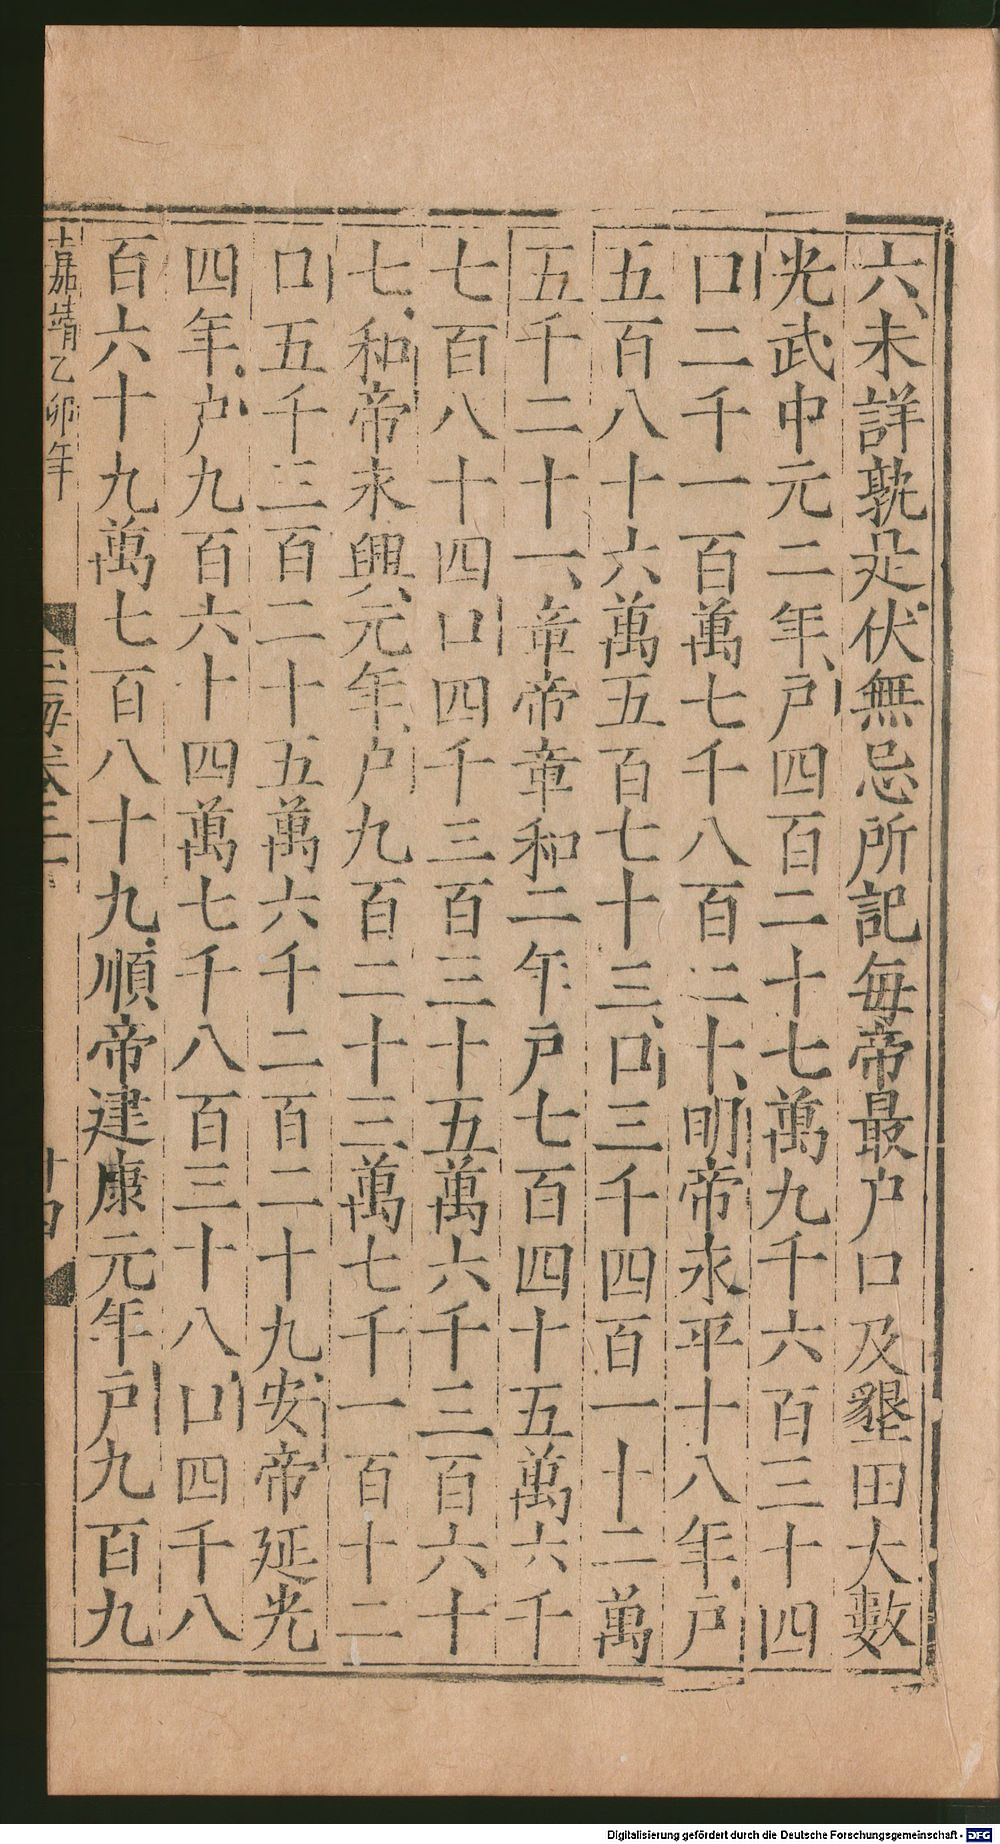 六未詳孰是伏無忌所記每帝最户口及墾田大數
光武中元二年户四百二十七萬九千六百三十四
口二千一百萬七千八百二十明帝永平十八年户
五百八十六萬五百七十三口三千四百一十二萬
五千二十一章帝章和二年户七百四十五萬六千
七百八十四口四千三百三十五萬六千三百六十
七和帝永興元年户九百二十三萬七千一百十二
口五千三百二十五萬六千二百二十九安帝延光
四年户九百六十四萬七千八百三十八口四千八
百六十九萬七百八十九順帝建康元年户九百九
嘉靖乙卯年
玉海卷二
十四
Digitalisierung gefördert durch die Deutsche Forschungsgemeinschaft - DFG